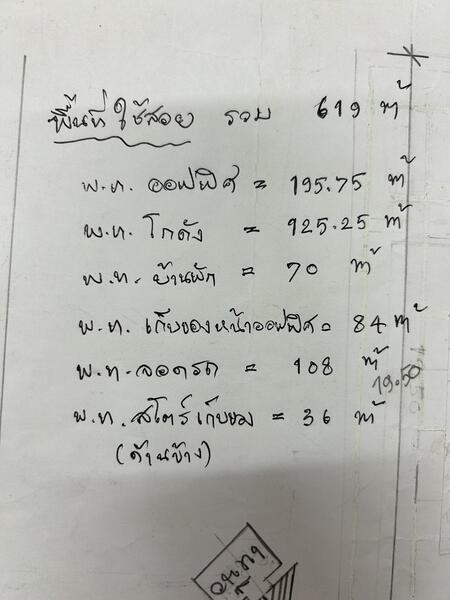 พื้นที่ใช้สอย รวม 619 m²
พ.ท. ออฟฟิศ = 195.75 m²
พ.ท. โกดัง = 125.25 m²
พ.ท. บ้านพัก = 70 m²
พ.ท. เก็บของหน้าออฟฟิศ = 84 m²
พ.ท. จอดรถ = 108 m²
19.50
พ.ท. สโตร์เก็บของ = 36 m²
(ด้านข้าง)